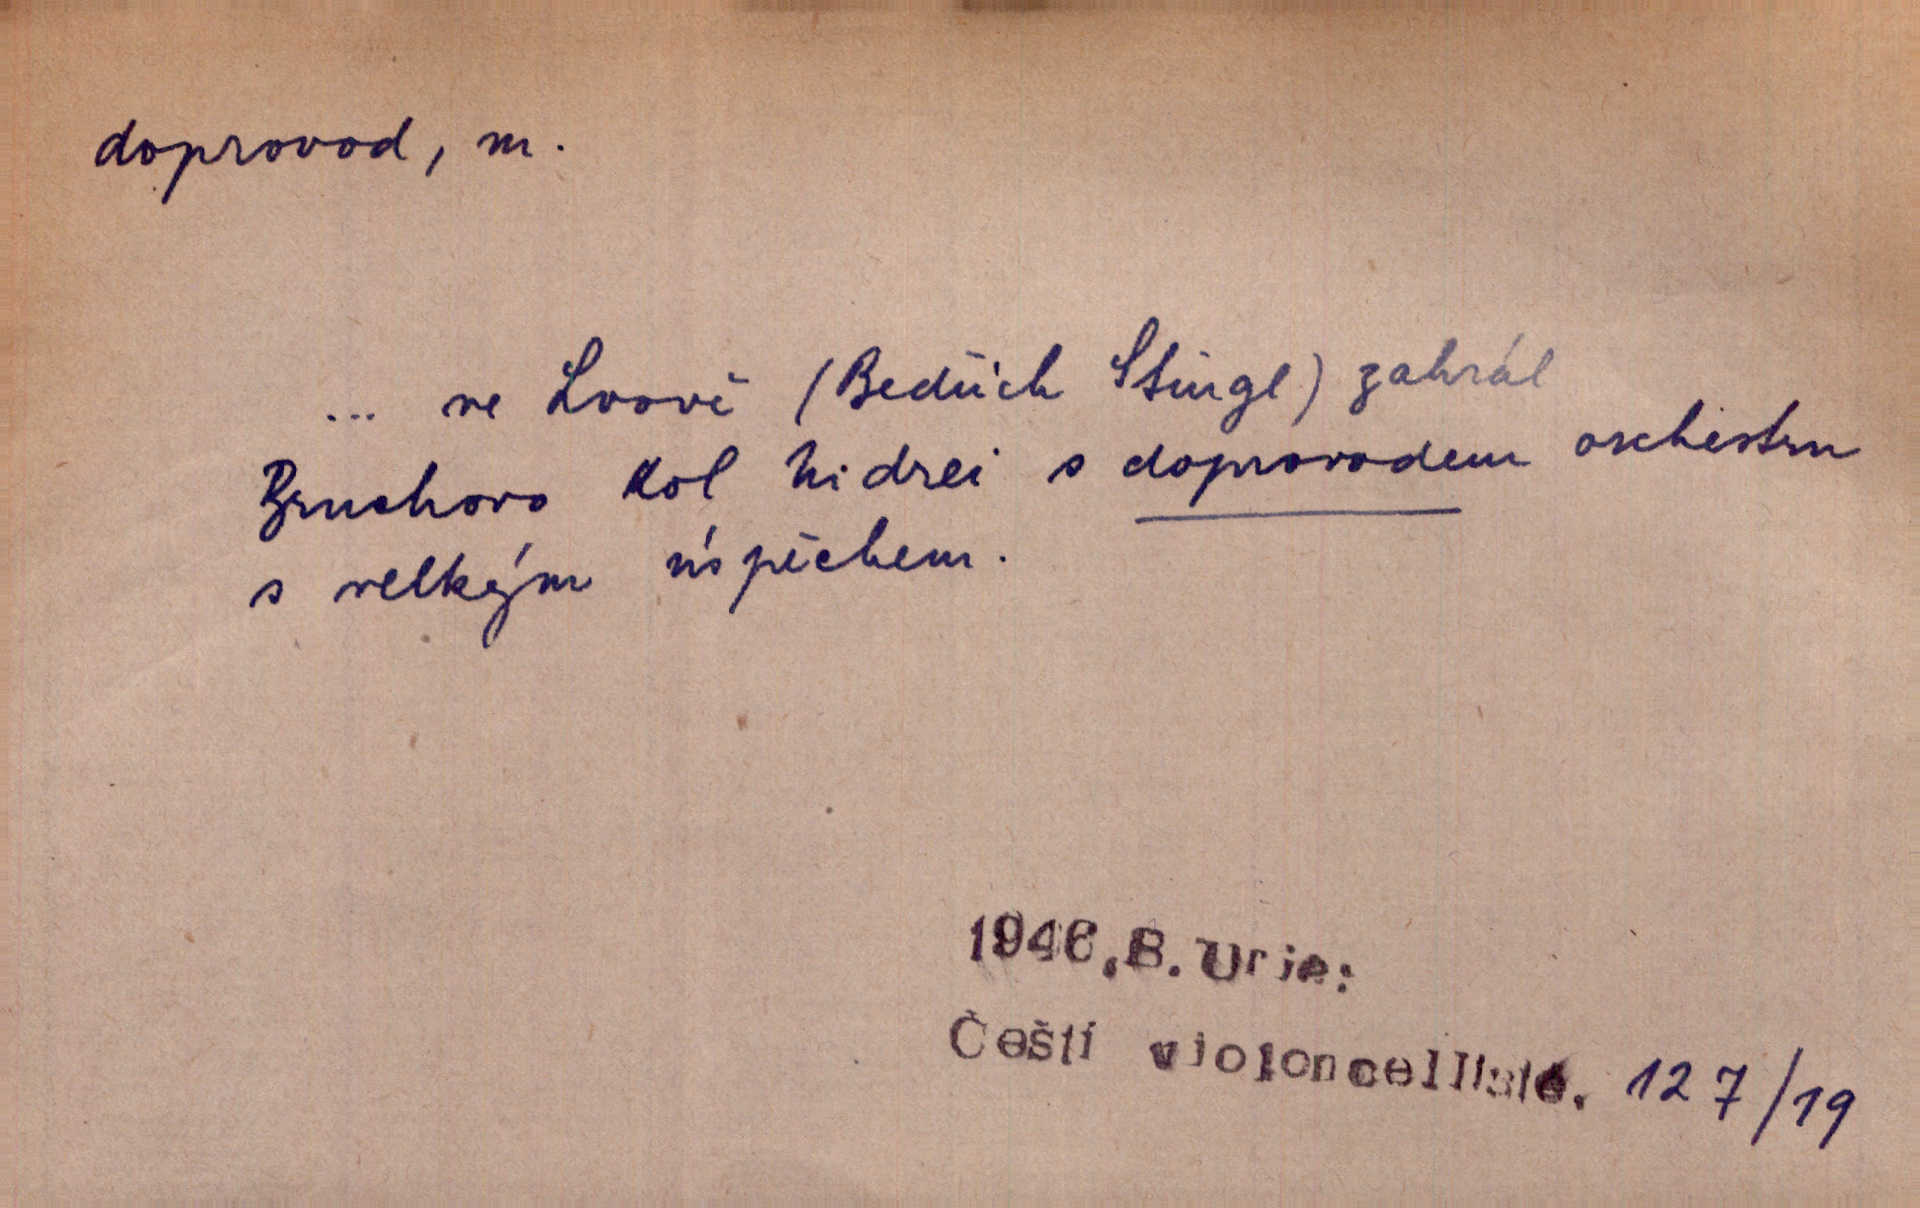 doprovod, m.
... ve Lvově (Bedřich Stingl) zahrál
Bruchovo Kol Nidrei s doprovodem orchestru
s velkým úspěchem.
1946.B. Urie:
Čeští violoncellisté. 127/19